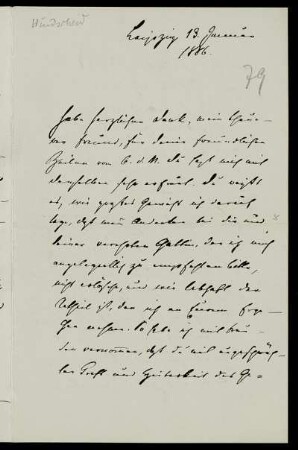 Leipzig 13. Januar
1886.
79
Habe herzlichen Dank, mein theu-
rer Freund, für deine freundlichen
Zeilen vom 6. d. M. Du hast mich mit
denselben sehr erfreut. Du weißt
es, wie großes Gewicht ich darauf
lege, daß mein Andenken bei dir und
deiner verehrten Gattin, der ich mich
angelegentlich zu empfehlen bitte,
nicht erlösche, und wie lebhaft der
Antheil ist, den ich an Eurem Erge-
hen nehme. So habe ich mit
vernommen, daß du mit
Kraft und Heiterkeit das